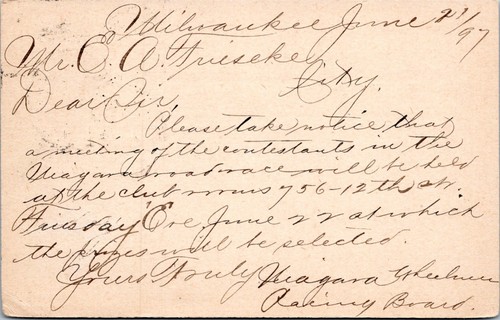 Milwaukee June 21/97
Mr. E. A. Frieseke
City.
Dear Sir,
Please take notice that
a meeting of the contestants in the
Niagara road race will be held
at the club rooms 756-12th str.
Tuesday Eve June 22 at which
the prizes will be selected.
Yours Truly Niagara Wheelmen
Racing Board.